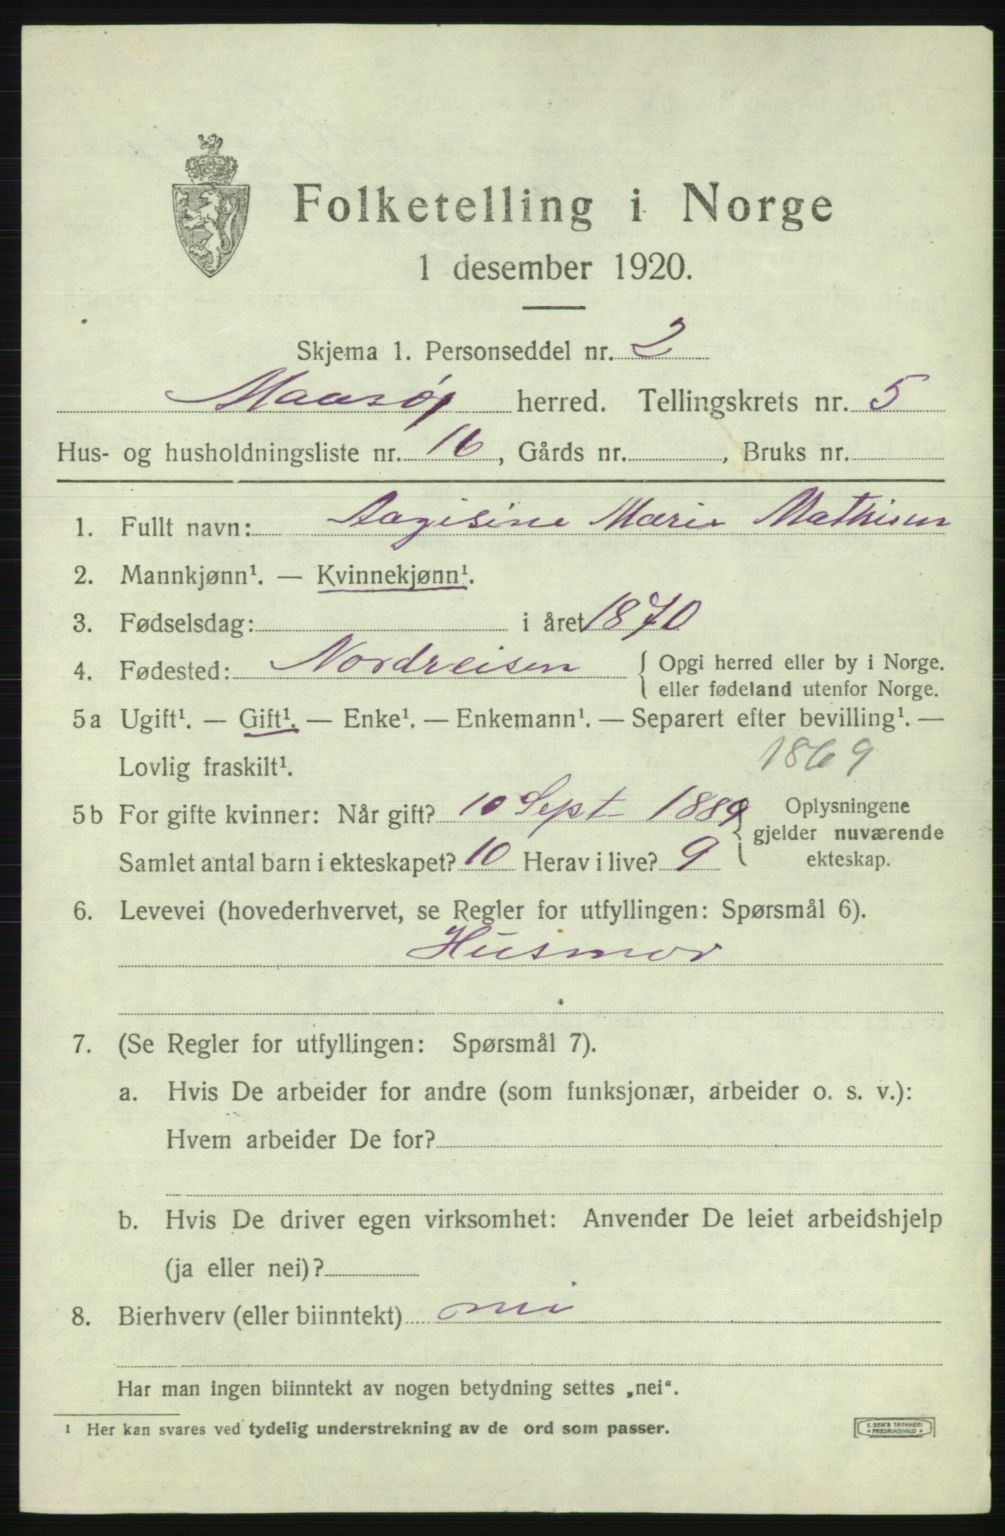 Folketelling i Norge
1 desember 1920.
Skjema 1. Personseddel nr. 2
Maasøy herred. Tellingskrets nr. 5
Hus- og husholdningsliste nr. 16, Gårds nr. , Bruks nr.
1. Fullt navn: Aagisine Marie Mathisen
2. Mannkjønn¹. — Kvinnekjønn¹.
3. Fødselsdag: i året 1870
4. Fødested: Nordreisen { Opgi herred eller by i Norge.
eller fødeland utenfor Norge.
5a Ugift¹. — Gift¹. — Enke¹. — Enkemann¹. — Separert efter bevilling¹. —
Lovlig fraskilt¹. 1869
5b For gifte kvinner: Når gift? 10 Sept 1889 { Oplysningene
gjelder nuværende
Samlet antal barn i ekteskapet? 10 Herav i live? 9 ekteskap.
6. Levevei (hovederhvervet, se Regler for utfyllingen: Spørsmål 6).
Husmor
7. (Se Regler for utfyllingen: Spørsmål 7).
a. Hvis De arbeider for andre (som funksjonær, arbeider o. s. v.):
Hvem arbeider De for?
b. Hvis De driver egen virksomhet: Anvender De leiet arbeidshjelp
(ja eller nei)?
8. Bierhverv (eller biinntekt) nei
Har man ingen biinntekt av nogen betydning settes „nei“.
¹ Her kan svares ved tydelig understrekning av de ord som passer.
E. SEM'S TRYKKERI
FREDRIKSHALD